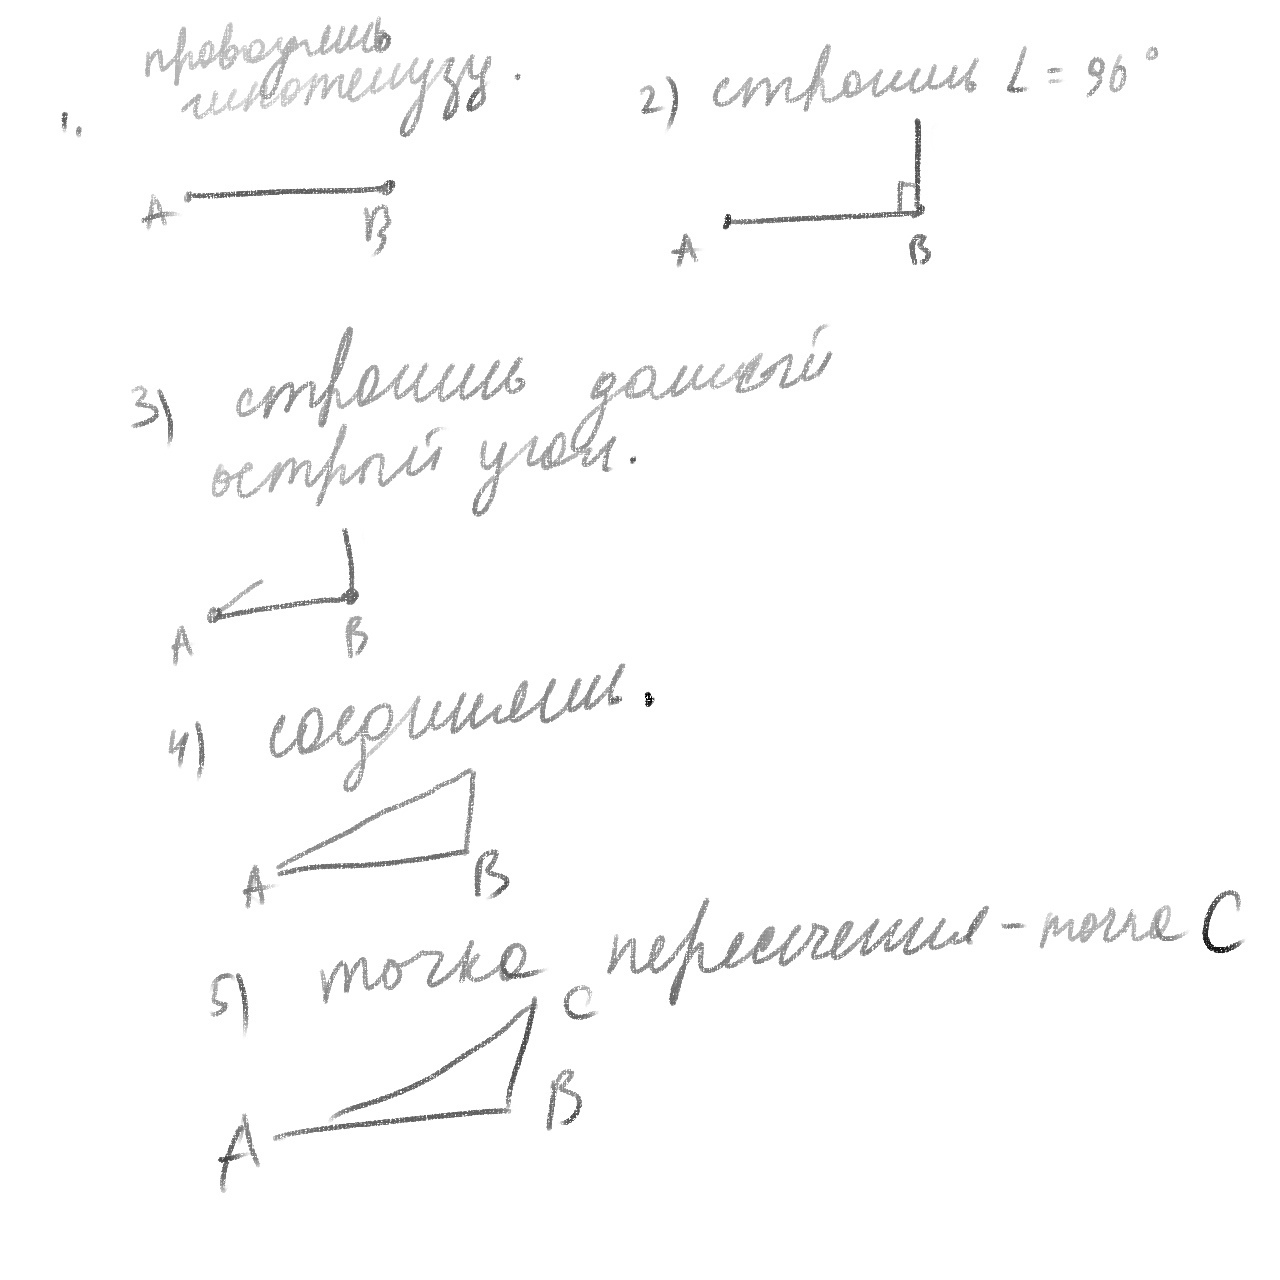 проводишь
гипотенузу.
1.
A B
2) строишь L = 90°
A B
3) строишь данный
острый угол.
A B
4) соединяешь.
A B
5) точка пересечения - точка C
C
A B